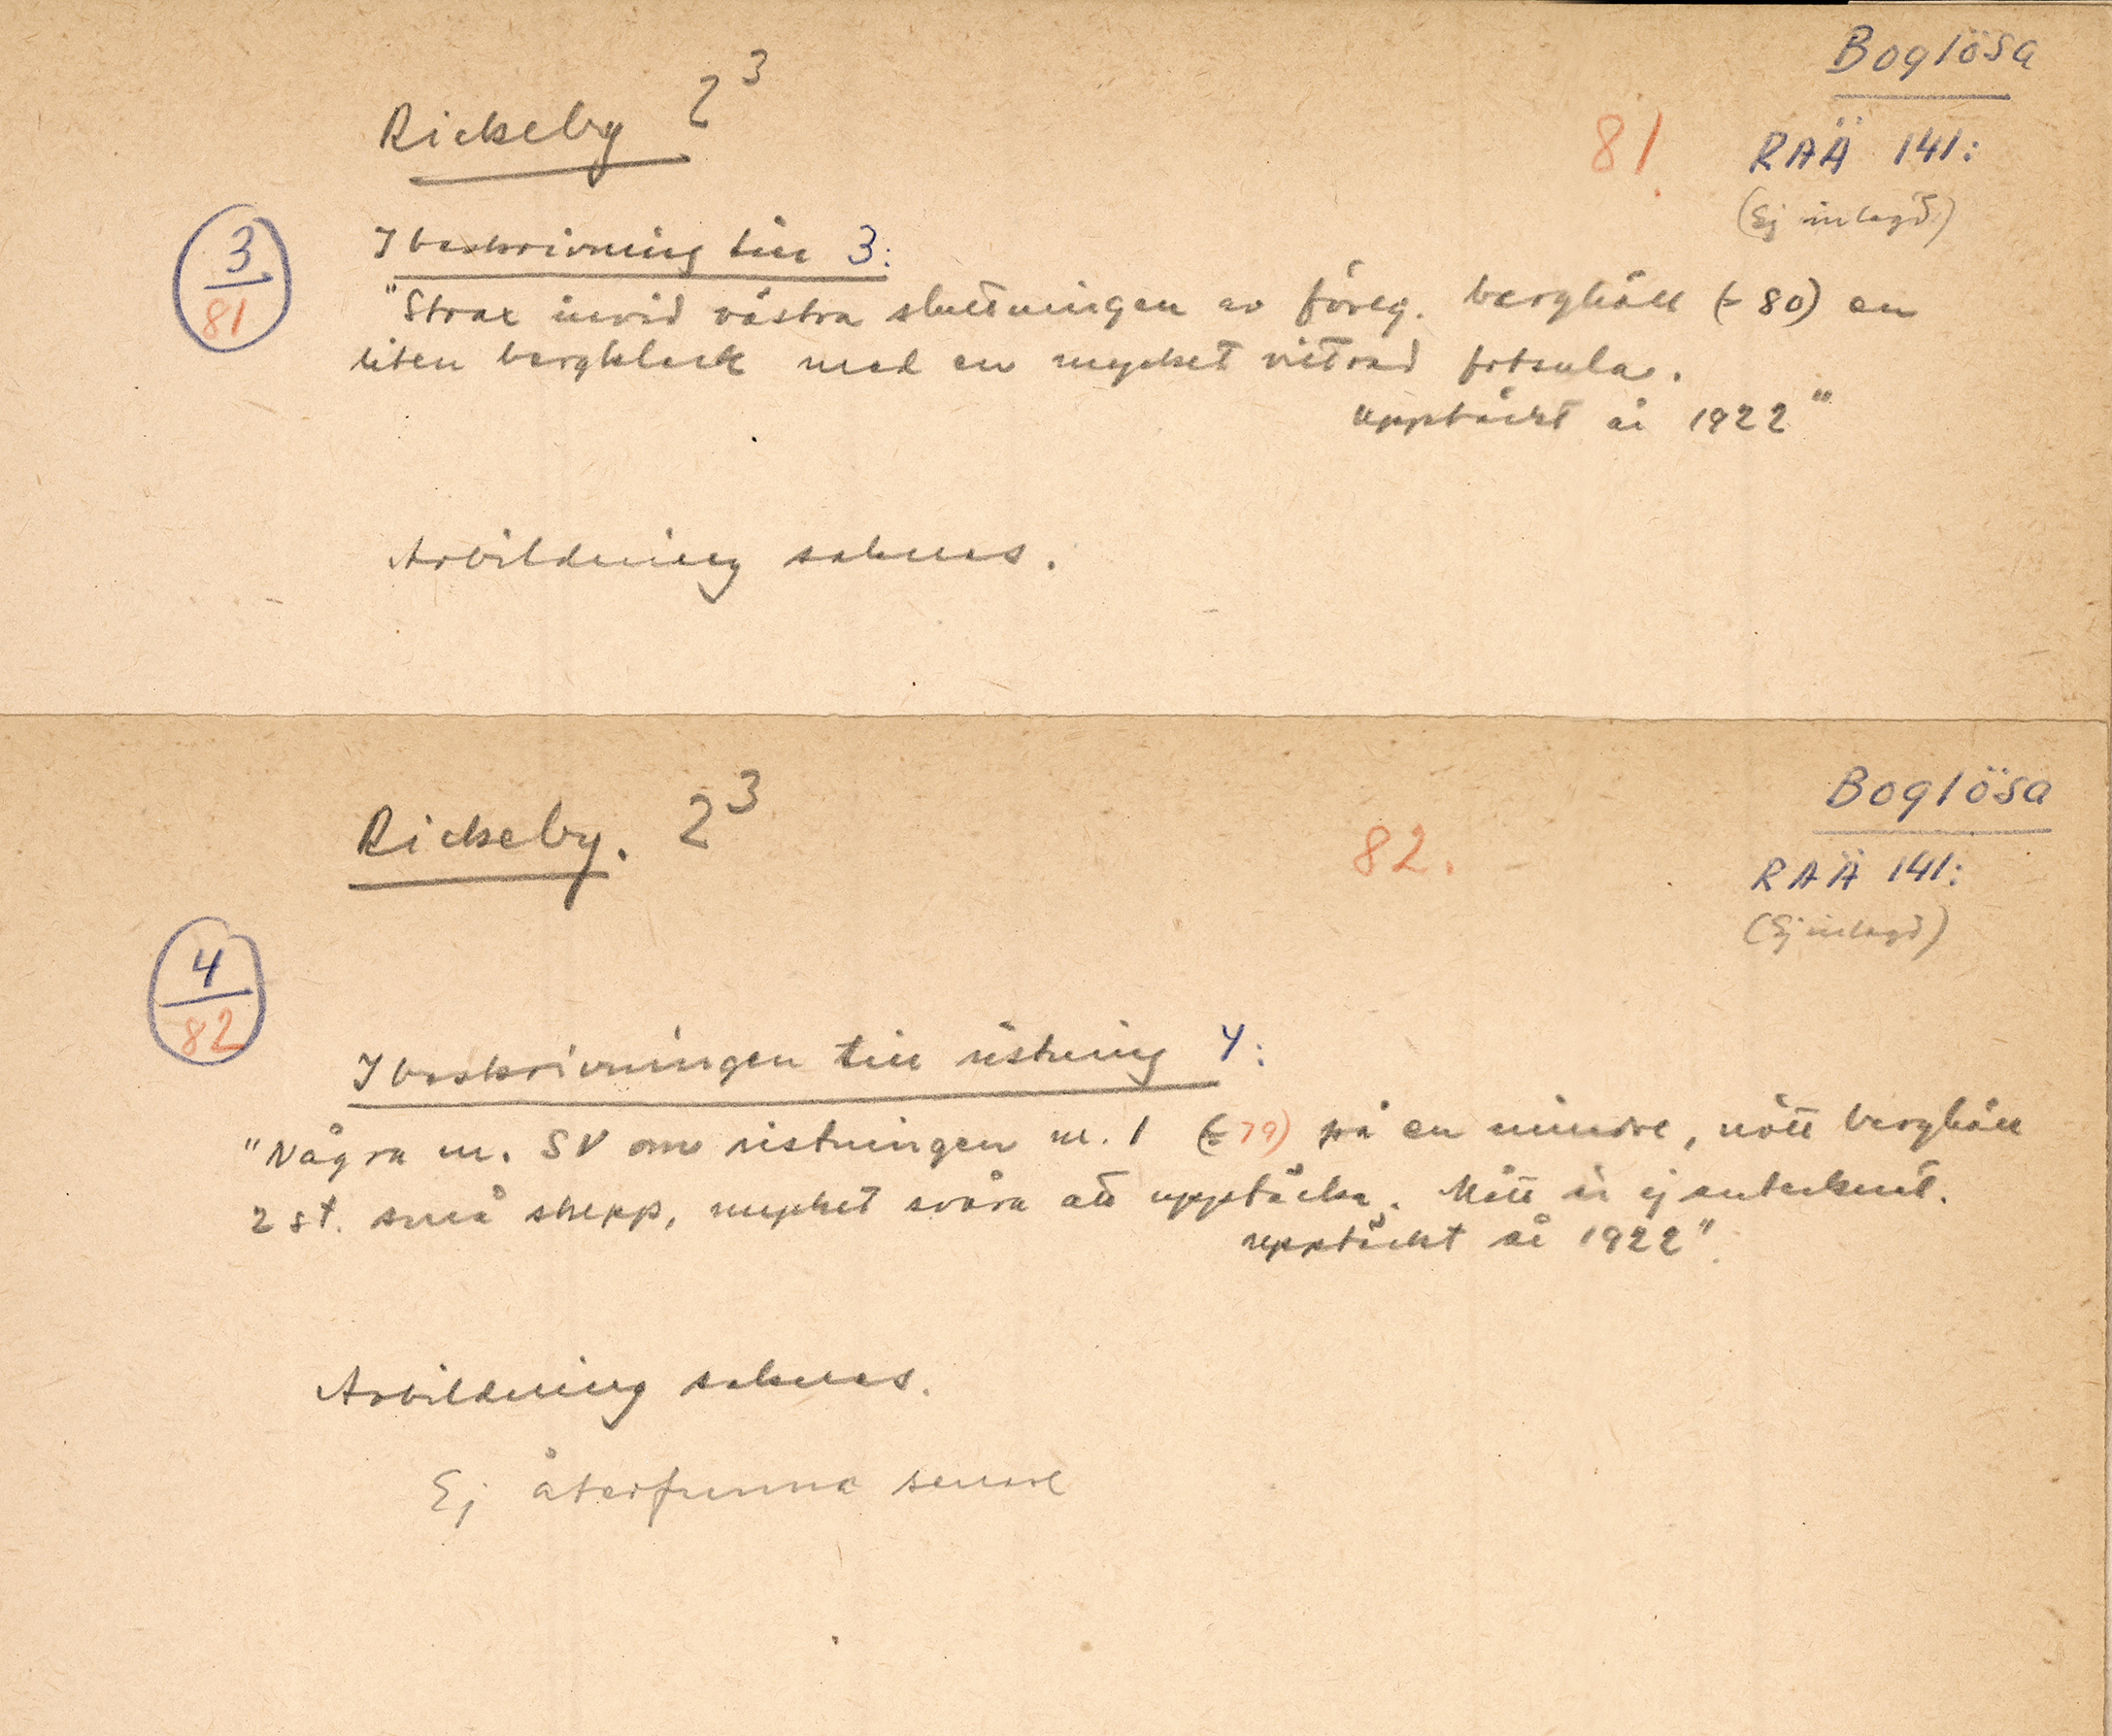 Boglösa
Rickeby 2³
81.
RAÄ 141:
(Ej inlagd)
3
81
I beskrivning till 3:
"Strax invid västra sluttningen av föreg. berghäll (= 80) en
liten bergklack med en mycket vittrad fotsula.
Upptäckt år 1922"
Avbildning saknas.
Boglösa
Rickeby. 2³
82.
RAÄ 141:
(Ej inlagd)
4
82
I beskrivningen till ristning 4:
"Några m. SV om ristningen nr. 1 (= 79) på en mindre, nött berghäll
2 st. små skepp, mycket svåra att upptäcka. Mått är ej antecknat.
upptäckt år 1922".
Avbildning saknas.
Ej återfunna senare